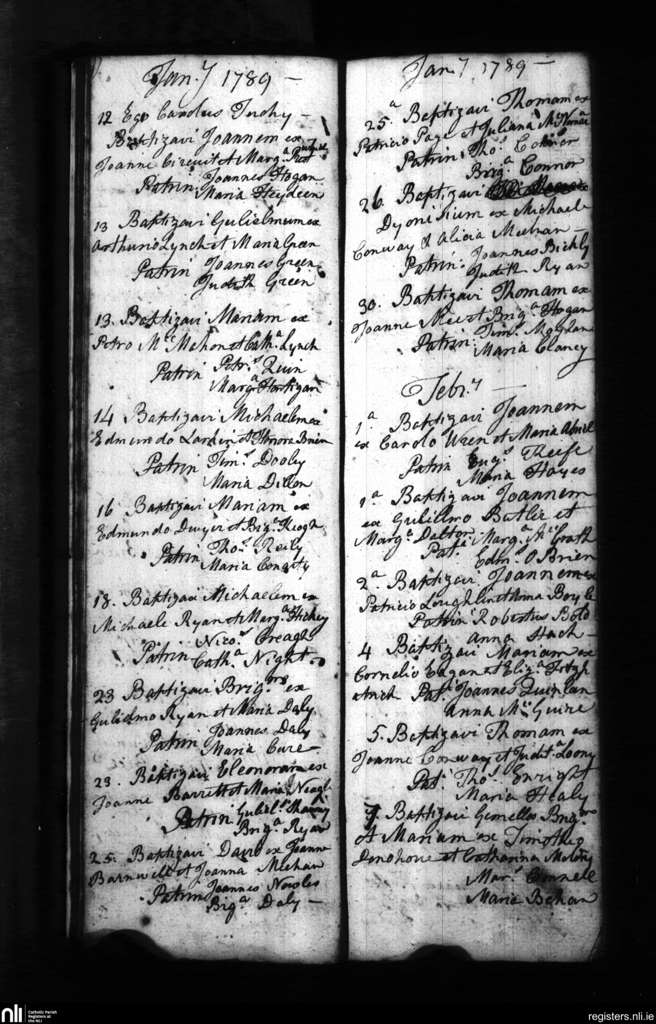 Jan.y 1789 —
12 Ego Carolus Tuohy
Baptizavi Joannem ex
Joanne Circuit et Marg.a
Patrin Joannes Hogan
Maria Heydeen
13 Baptizavi Gulielmum ex
Arthurio Lynch et Maria Green
Patrin Joannes Green
Judith Green
13. Baptizavi Mariam ex
Petro Mc Mahon et Cath.a Lynch
Patrin Petr.s Quin
Marg.a Hartigan
14 Baptizavi Michaelem ex
Edmundo Larkin et Honora Brien
Patrin Tim.s Dooley
Maria Dillon
16 Baptizavi Mariam ex
Edmundo Dwyer et Brig.a Keogh
Patrin Tho.s Reily
Maria Conarty
18. Baptizavi Michaelem ex
Michaele Ryan et Marg.a Hickey
Patrin Nico.s Creagh
Cath.a Night
23 Baptizavi Brig. ex
Gulielmo Ryan et Maria Daly
Patrin Joannes Daly
Maria Cure
23. Baptizavi Eleonoram ex
Joanne Barrett et Maria Neagh
Patrin Guliel.s
Brig.a Ryan
25. Baptizavi David ex Joanne
Barnwell et Joanna Meehan
Patrin Joannes Nowles
Brig.a Daly —
Jan.y 1789 —
25.a Baptizavi Thomam ex
Patricio Page et Juliana
Patrin: Tho.s Connor
Brig.a Connor
26. Baptizavi
Dyonesium ex Michaele
Conway & Alicia Meehan —
Patrin: Joannes Bickly
Judith Ryan
30. Baptizavi Thomam ex
Joanne Mee et Brig.a Hogan
Patrin: Tim.s
Maria Clancy
Febr.y —
1.a Baptizavi Joannem
ex Carolo Wren et Maria
Patrin Eug.s Keefe
Maria Hayes
1.a Baptizavi Joannem
ex Gulielmo Butler et
Marg.a Dalton Marg.a Mc Crath
Pat. Edm.s O Brien
2.a Baptizavi Joannem ex
Patricio Loughlin et Anna Boyle
Patrin Robertus Boyd
Anna
4 Baptizavi Mariam ex
Cornelio Eagan et Eliz.a Fitzge
Pat. Joannes Quinlan
Anna Mc Guire
5. Baptizavi Thomam ex
Joanne Conway et Judit.a Loony
Pat. Tho.s Enright
Maria Healy
7 Baptizavi Gemellos Brig.
et Mariam ex Timotheo
Donohoue et Catharina Molony
Mar.s Connell
Maria Behan
nli
Catholic Parish
Registers at
the NLI
registers.nli.ie